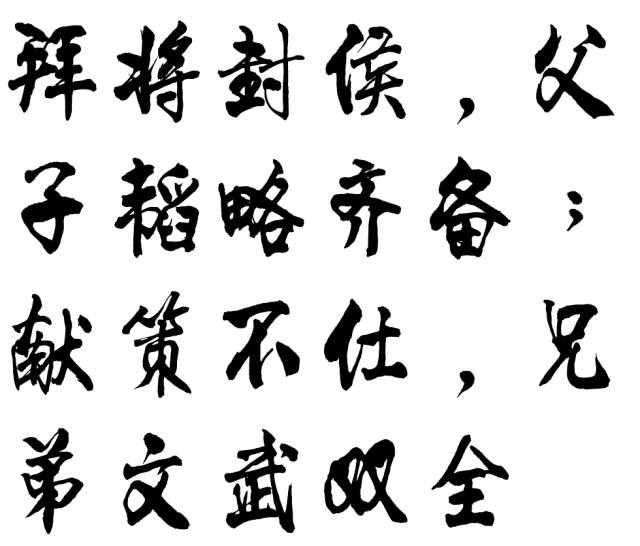 拜将封侯，父
子韬略齐备；
献策不仕，兄
弟文武双全